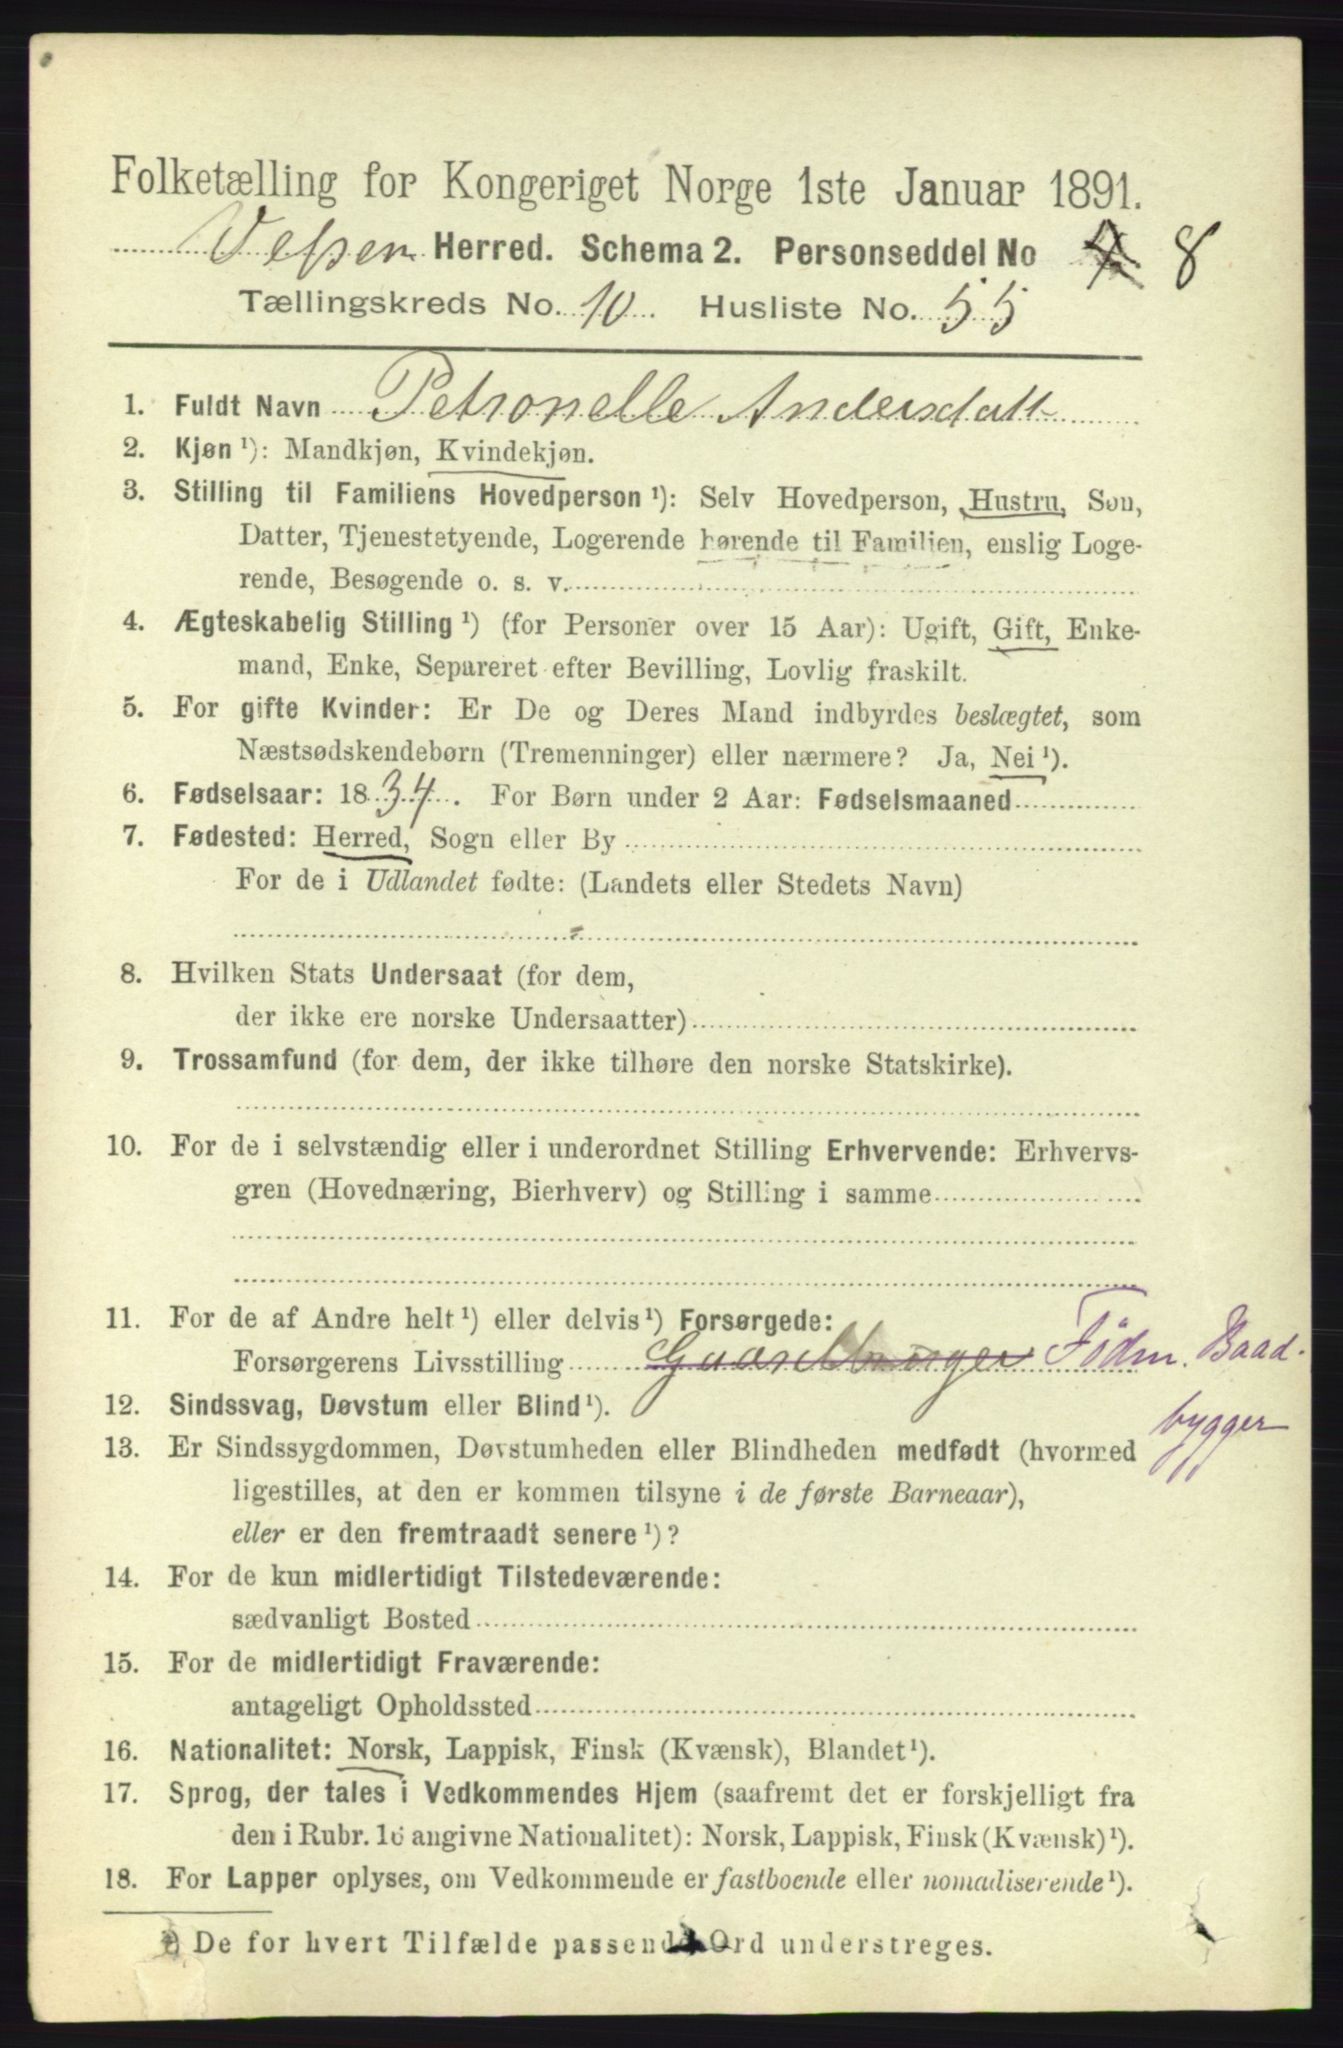 Folketælling for Kongeriget Norge 1ste Januar 1891.
Vefsen Herred. Schema 2. Personseddel No 8
Tællingskreds No. 10 Husliste No. 55
1. Fuldt Navn Petronelle Andersdatt
2. Kjøn ¹): Mandkjøn, Kvindekjøn.
3. Stilling til Familiens Hovedperson ¹): Selv Hovedperson, Hustru, Søn,
Datter, Tjenestetyende, Logerende hørende til Familien, enslig Loge-
rende, Besøgende o. s. v.
4. Ægteskabelig Stilling ¹) (for Personer over 15 Aar): Ugift, Gift, Enke-
mand, Enke, Separeret efter Bevilling, Lovlig fraskilt.
5. For gifte Kvinder: Er De og Deres Mand indbyrdes beslægtet, som
Næstsødskendebørn (Tremenninger) eller nærmere? Ja, Nei ¹).
6. Fødselsaar: 1834. For Børn under 2 Aar: Fødselsmaaned
7. Fødested: Herred, Sogn eller By
For de i Udlandet fødte: (Landets eller Stedets Navn)
8. Hvilken Stats Undersaat (for dem,
der ikke ere norske Undersaatter)
9. Trossamfund (for dem, der ikke tilhøre den norske Statskirke).
10. For de i selvstændig eller i underordnet Stilling Erhvervende: Erhvervs-
gren (Hovednæring, Bierhverv) og Stilling i samme
11. For de af Andre helt ¹) eller delvis ¹) Forsørgede:
Forsørgerens Livsstilling Gaardbruger Födm. Baad-
bygger
12. Sindssvag, Døvstum eller Blind ¹).
13. Er Sindssygdommen, Døvstumheden eller Blindheden medfødt (hvormed
ligestilles, at den er kommen tilsyne i de første Barneaar),
eller er den fremtraadt senere ¹)?
14. For de kun midlertidigt Tilstedeværende:
sædvanligt Bosted
15. For de midlertidigt Fraværende:
antageligt Opholdssted
16. Nationalitet: Norsk, Lappisk, Finsk (Kvænsk), Blandet ¹).
17. Sprog, der tales i Vedkommendes Hjem (saafremt det er forskjelligt fra
den i Rubr. 16 angivne Nationalitet): Norsk, Lappisk, Finsk (Kvænsk) ¹).
18. For Lapper oplyses, om Vedkommende er fastboende eller nomadiserende ¹).
¹) De for hvert Tilfælde passende Ord understreges.